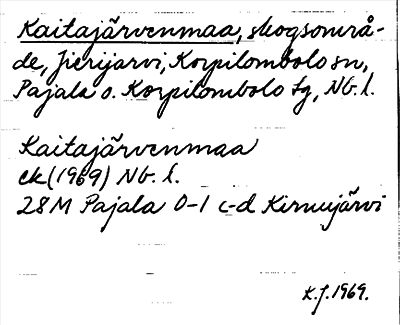 Kaitajärvenmaa, skogsområ-
de, Jierijarvi, Korpilombolo sn,
Pajala o. Korpilombolo tg, Nb. l.
Kaitajärvenmaa
ek (1969) Nb. l.
28M Pajala 0-1 c-d Kirnujärvi
K.J. 1969.